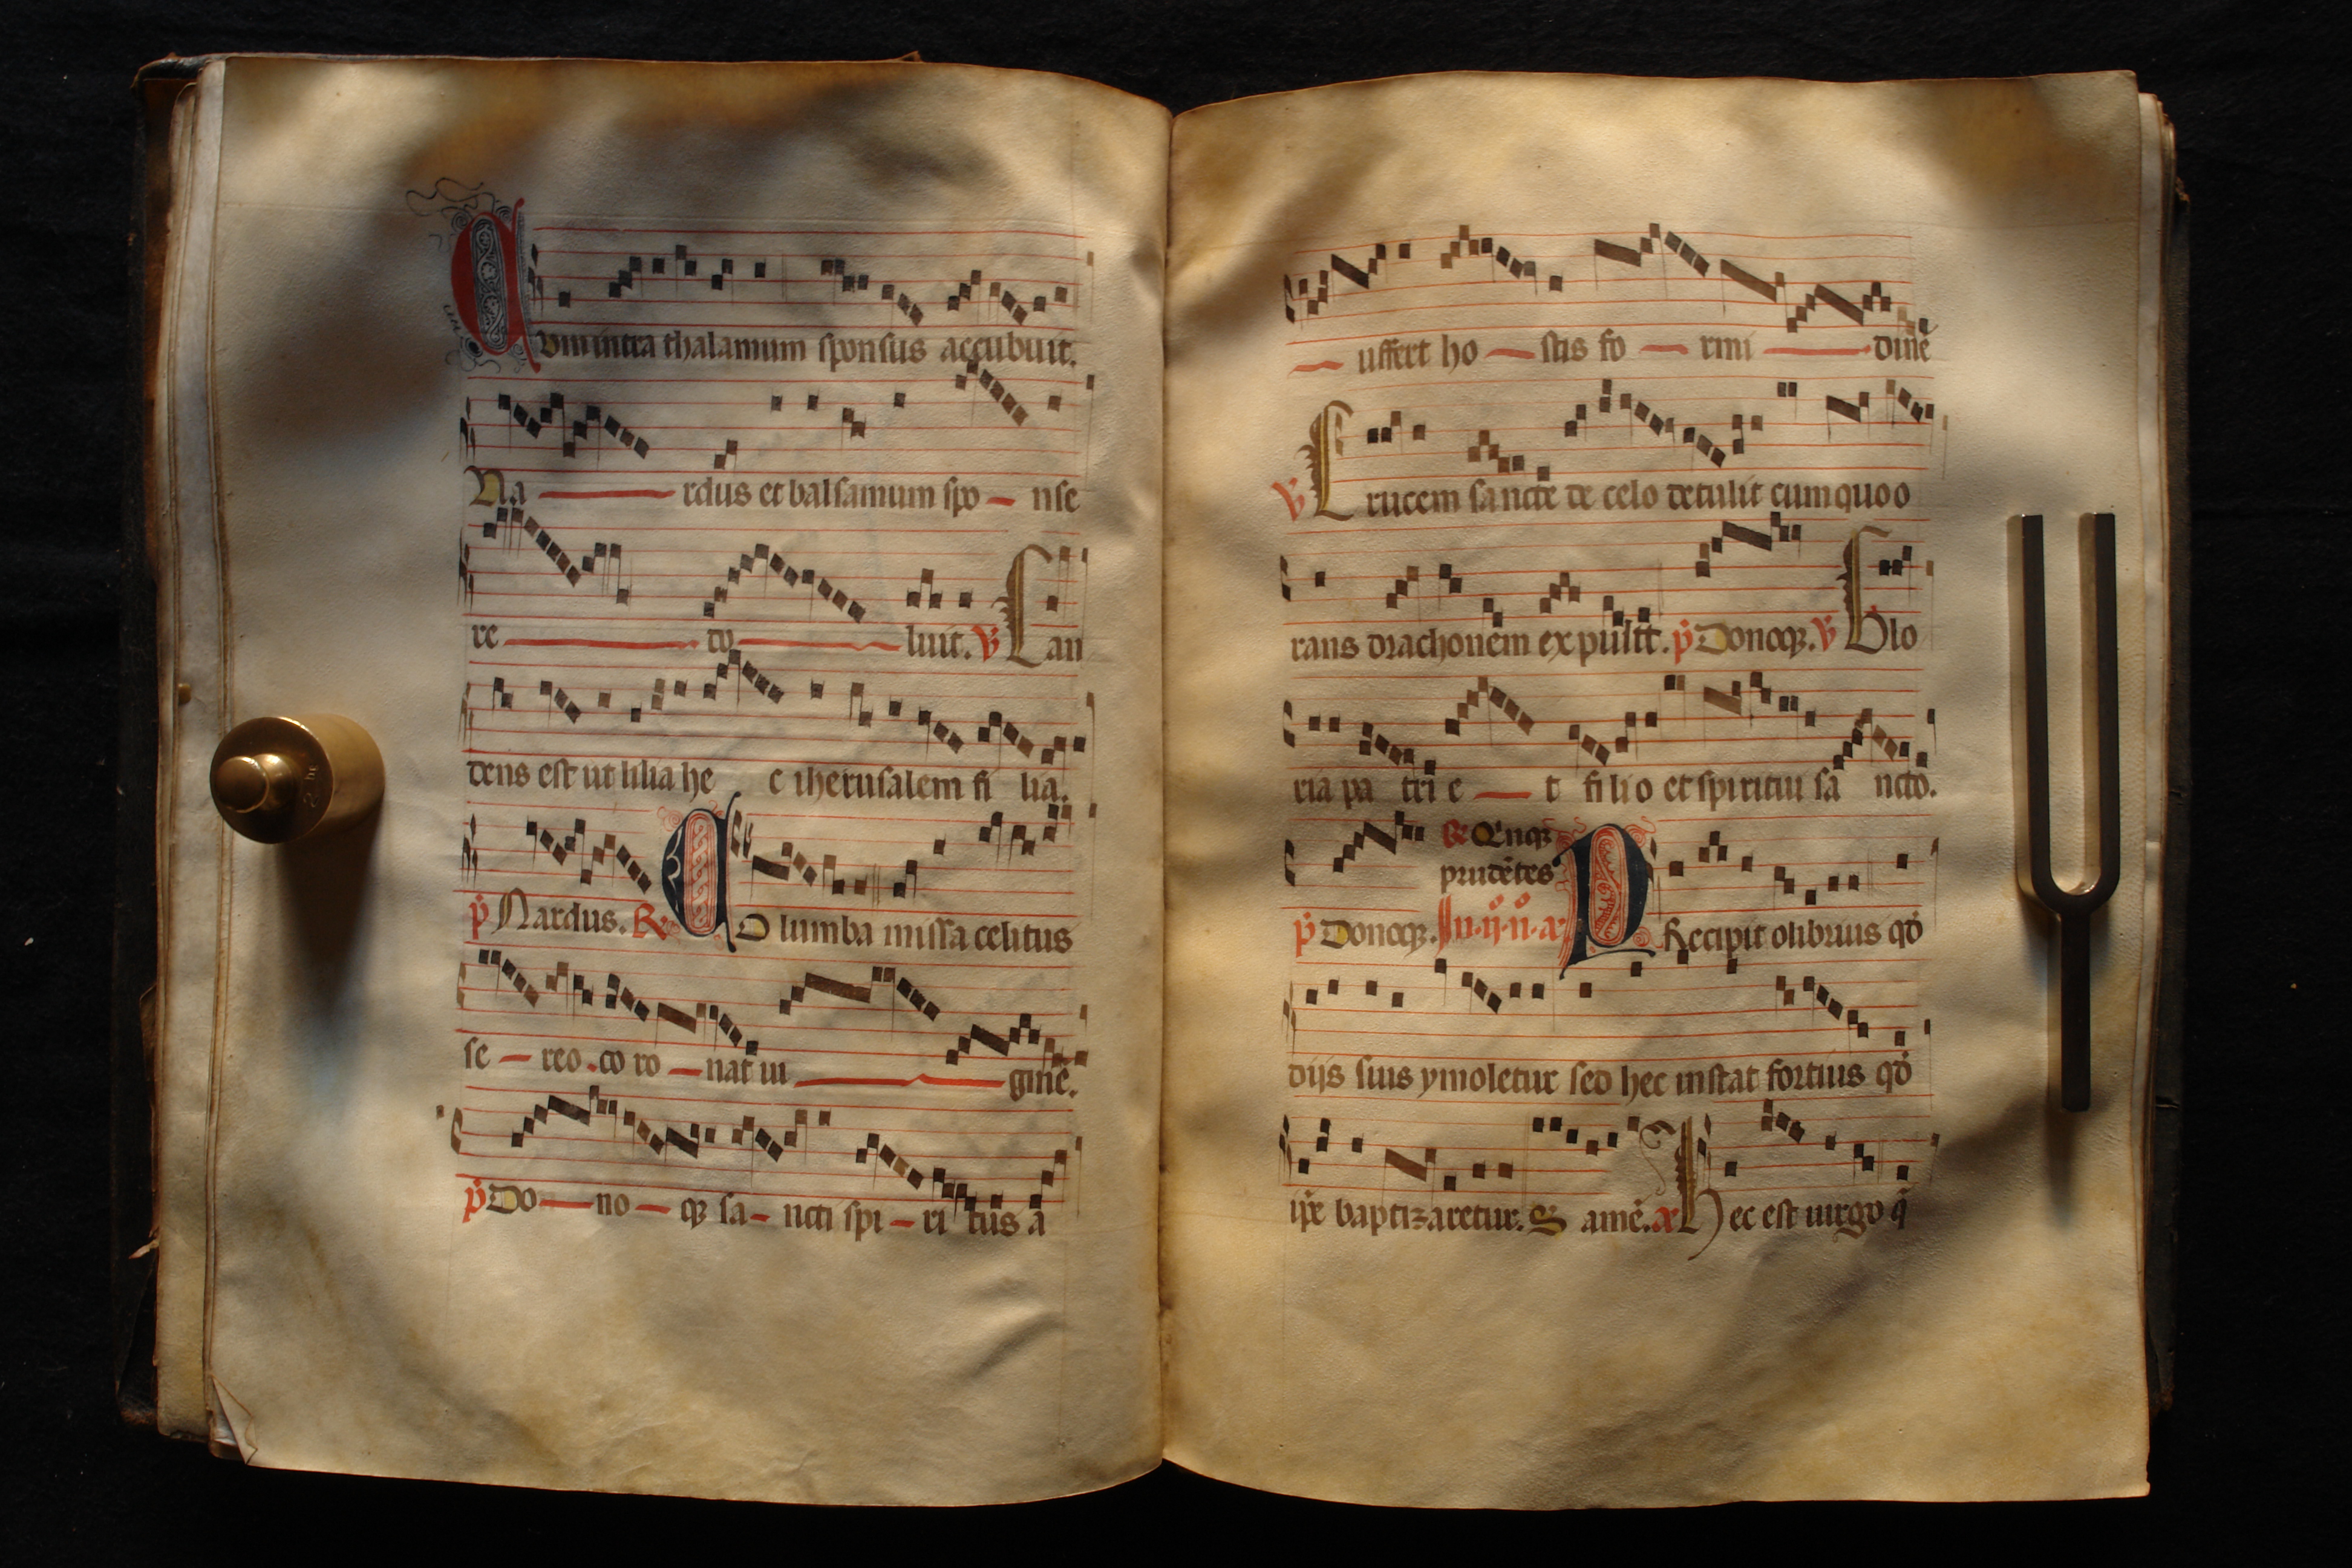 Cum intra thalamum sponsus accubuit.
Na rdus et balsamum spo nse
re do luit. V Can
dens est ut lilia he c iherusalem fi lia.
p Nardus. R Columba missa celitus
se reo. co ro nat ui ginē.
p Do no qꝫ sa ncti spi ri tus a
uffert ho stis fo rmi dinē
V Crucem sancte de celo detulit cum quo o
rans drachonem expulit. p Donoqꝫ. V Glo
ria pa tri e t filio et spiritui sa ncto.
R Qⁱnqꝫ
prudētes
p Donoqꝫ. Precipit olibrius qd̄
diis suis ymoletur sed hec instat fortius qd̄
ip̄e baptizaretur. S amē. a Hec est uirgo q̄
2